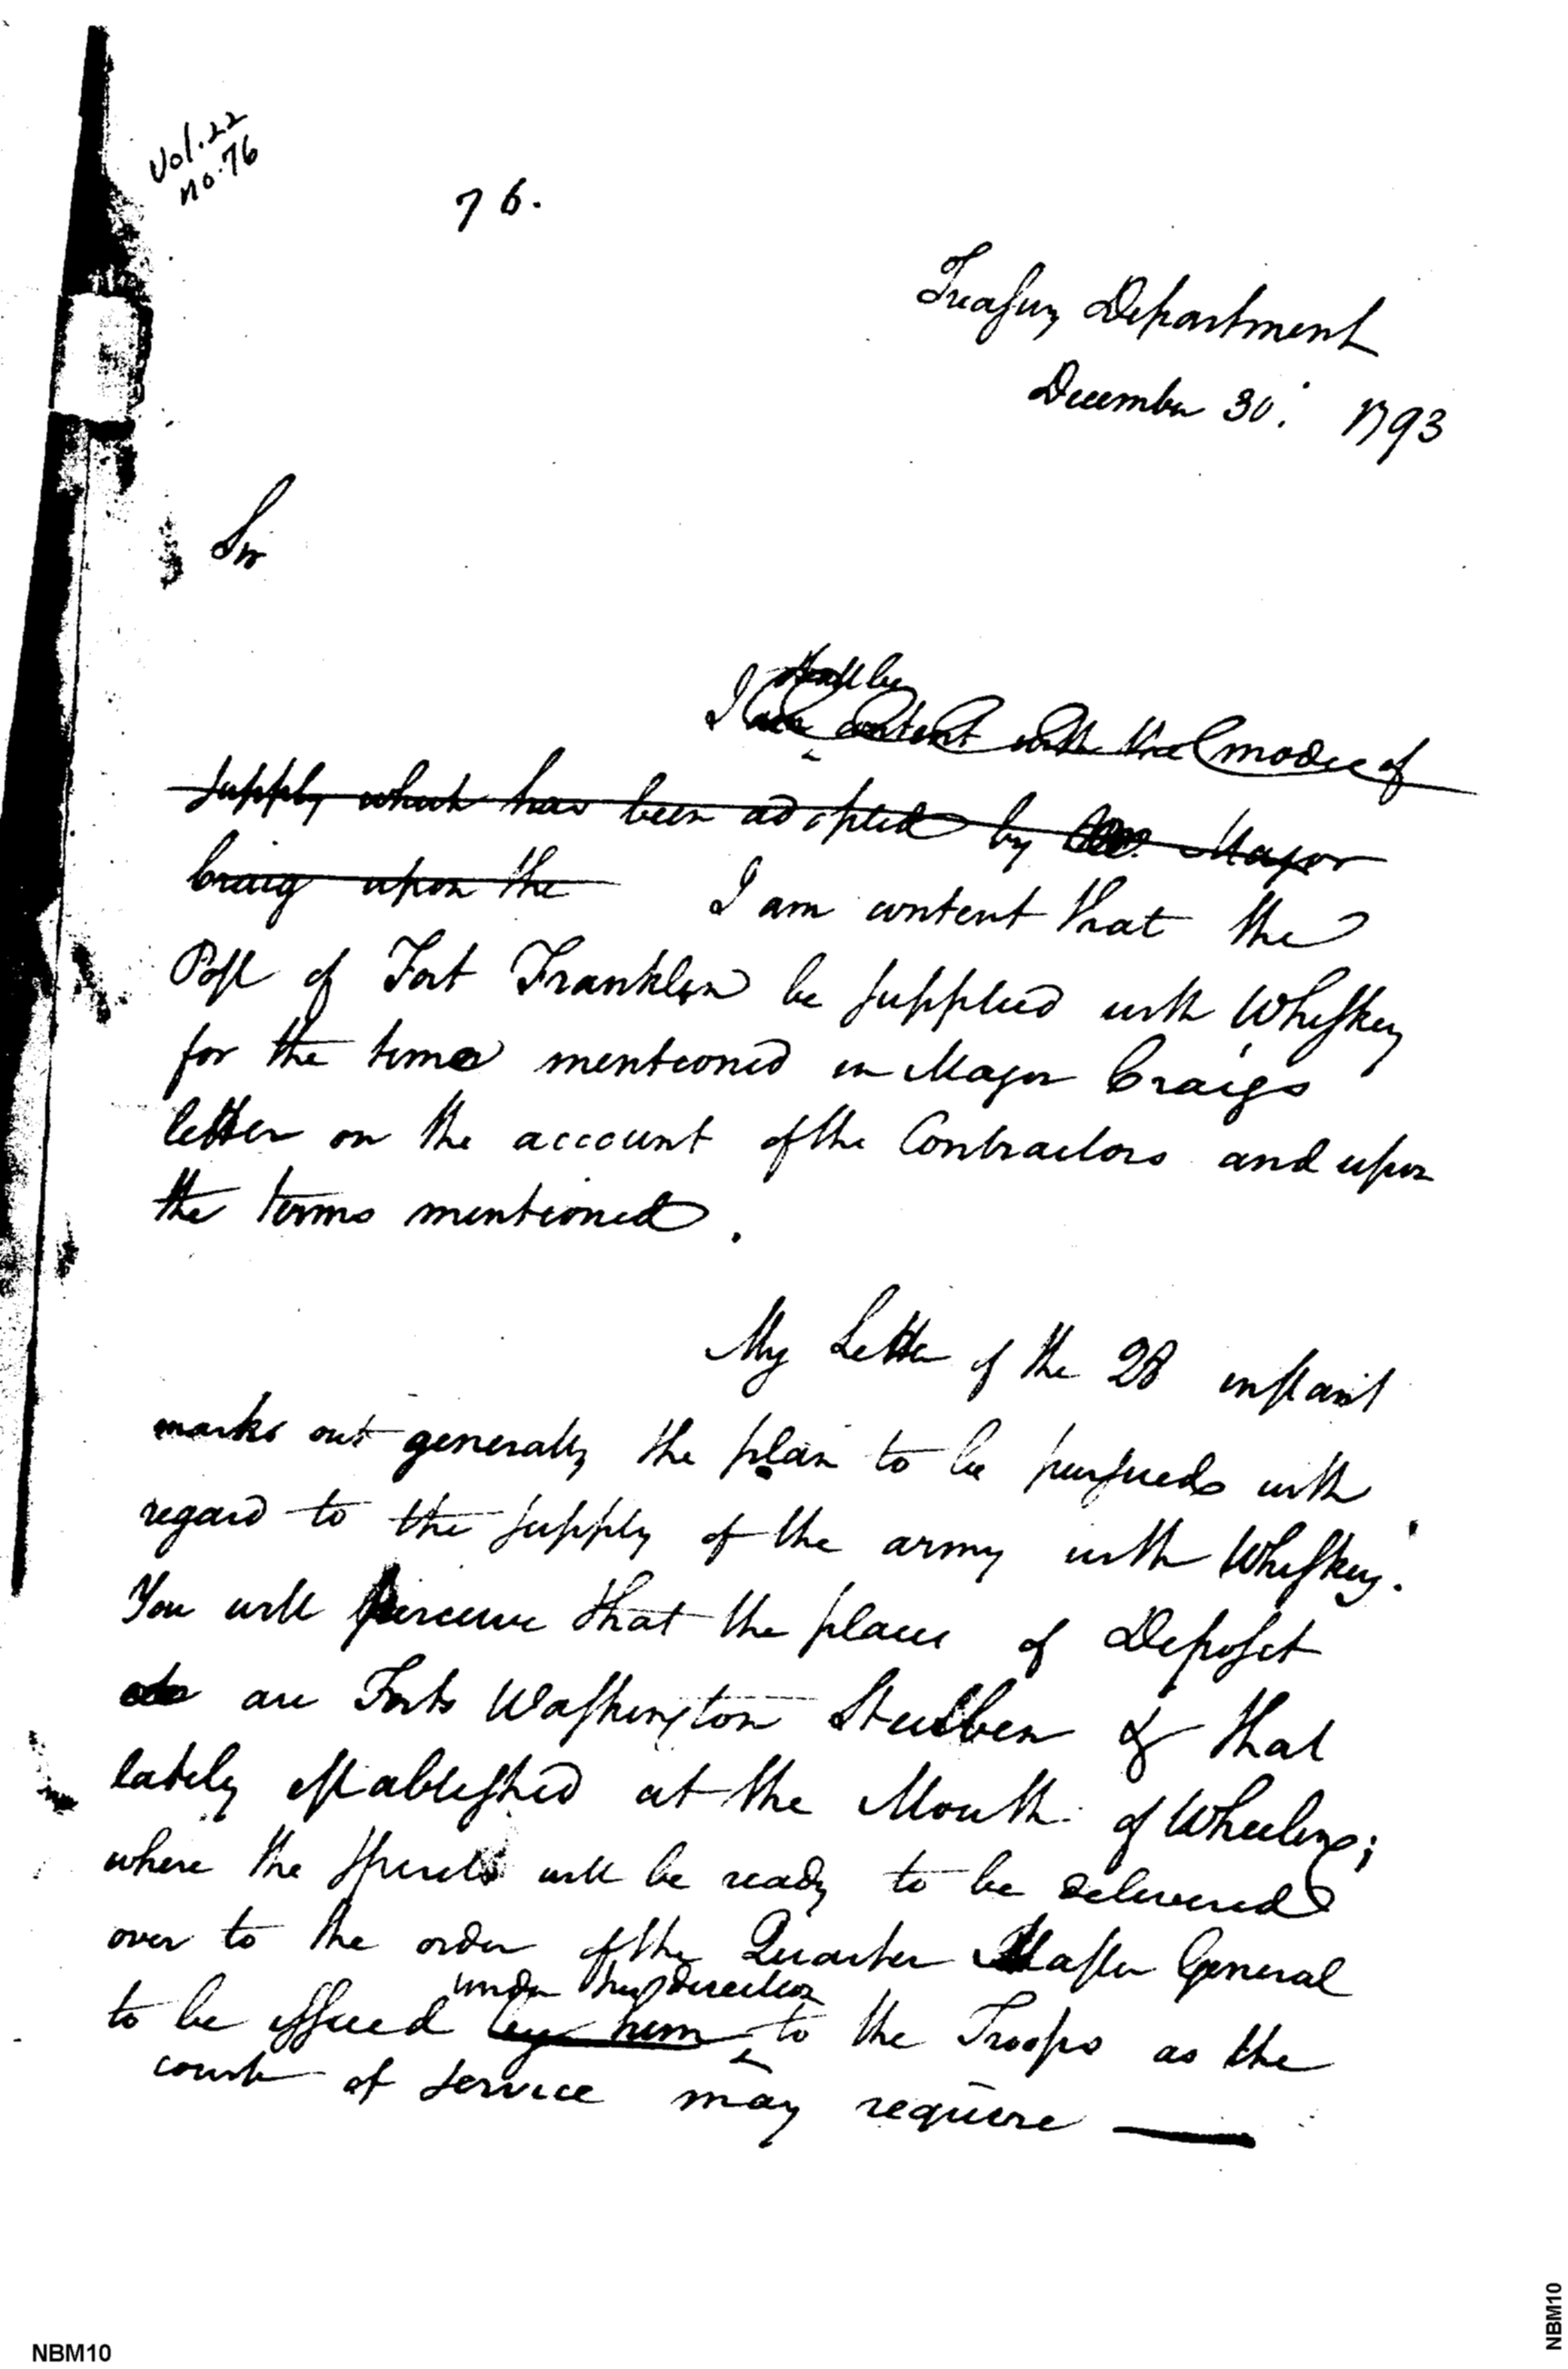 Vol. 22
no. 76
76.
Treasury Department
December 30. 1793
Sir
shall be
I am content with the mode of
supply which has been adopted by Major
Craig upon the I am content that the
Post of Fort Franklin be supplied with Whiskey
for the time mentioned in Major Craigs
letter on the account of the Contractors and upon
the terms mentioned.
My Letter of the 28 instant
marks out generally the plan to be pursued with
regard to the supply of the army with Whiskey.
You will perceive that the places of Deposit
are Forts Washington Steuben & that
lately established at the Mouth of Wheeling;
where the spirits will be ready to be delivered
over to the order of the Quarter Master General
under his direction
to be issued by him to the Troops as the
course of service may require —
NBM10
NBM10